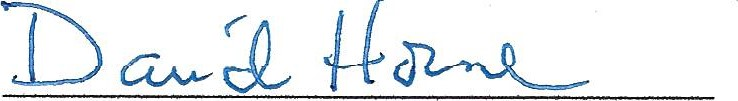 David Horne